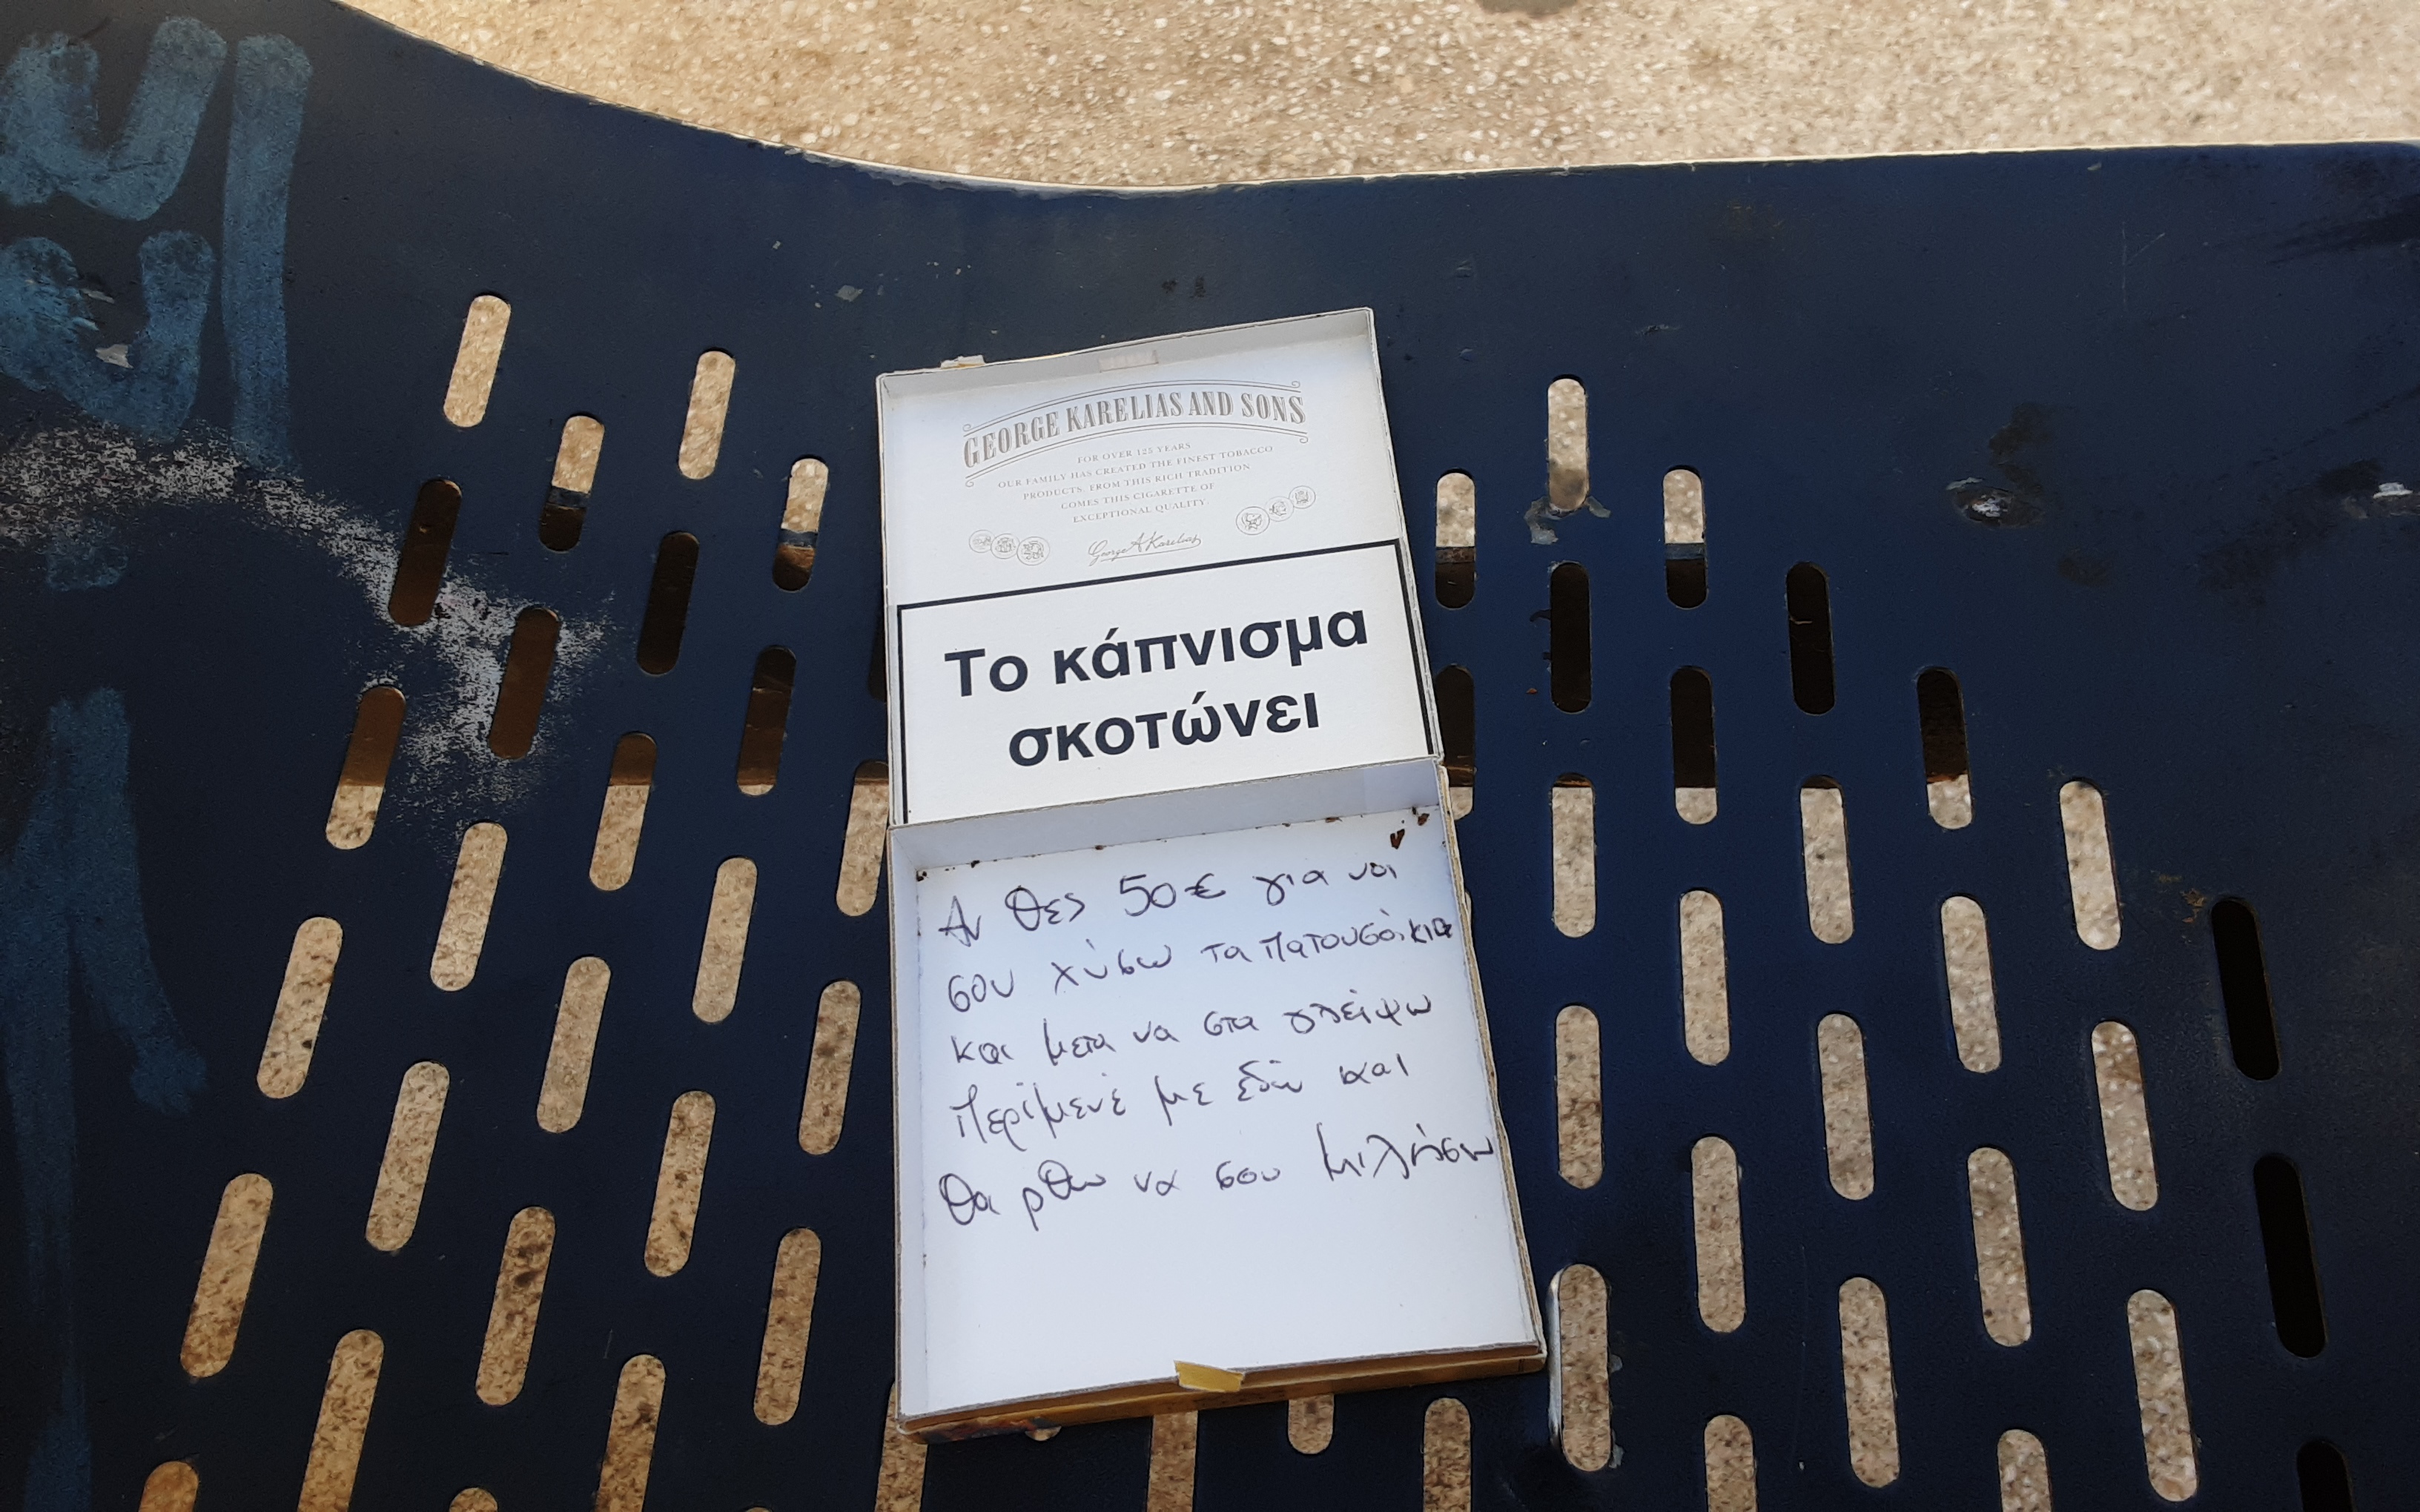 GEORGE KARELIAS AND SONS
FOR OVER 125 YEARS
OUR FAMILY HAS CREATED THE FINEST TOBACCO
PRODUCTS. FROM THIS RICH TRADITION
COMES THIS CIGARETTE OF
EXCEPTIONAL QUALITY
George A. Karelias
Το κάπνισμα
σκοτώνει
Αν θες 50€ για να
σου χύσω τα πατουσάκια
και μετα να στα γλείψω
περίμενέ με εδώ και
θα ρθω να σου μιλήσω